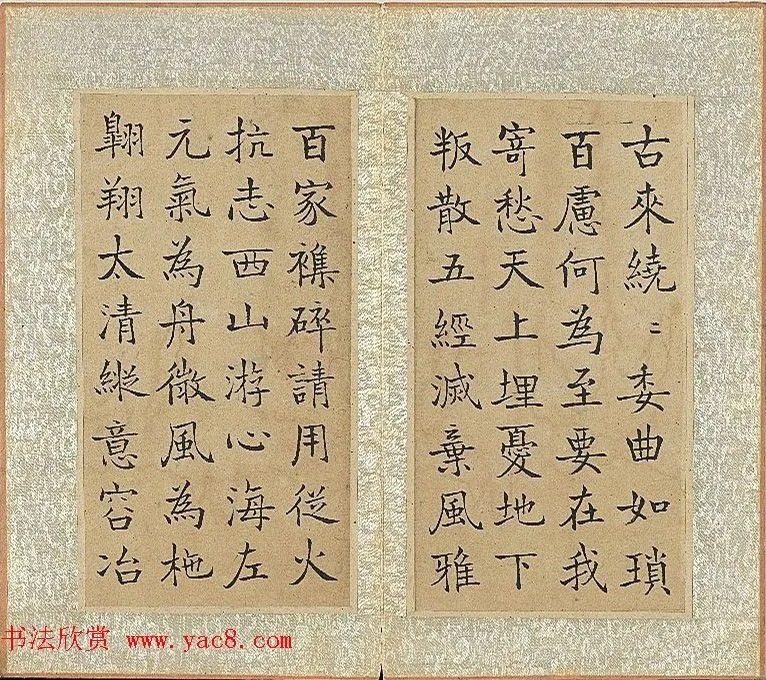 古來繞〻委曲如瑣
百慮何為至要在我
寄愁天上埋憂地下
叛散五經滅棄風雅
百家襍碎請用從火
抗志西山游心海左
元氣為舟微風為柂
翱翔太清縱意容冶
书法欣赏 www.yac8.com